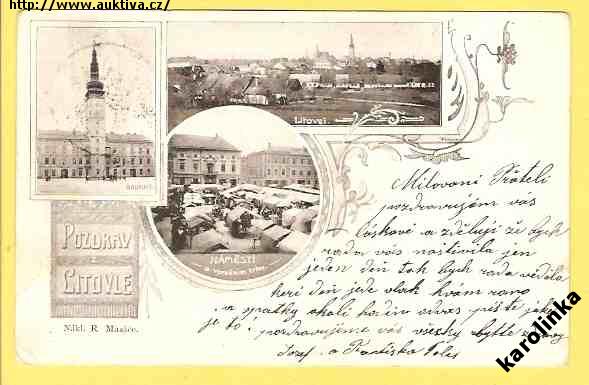 http://www.auktiva.cz/
Litovel.
RADNICE.
NÁMĚSTÍ
o výročním trhu.
POZDRAV
z
LITOVLE
Nákl. R. Mazáče.
Milovaní Přátelí
pozdravujam vás
láskavě a zděluji že bych
rada vás navštivila jen
jeden den tak bych rada věděla
keri den jede vlak k vám rano
a spatky okoli hodin odvas pište jak
je to! pozdravujeme vás všecky
Josef a Františka
karolinka